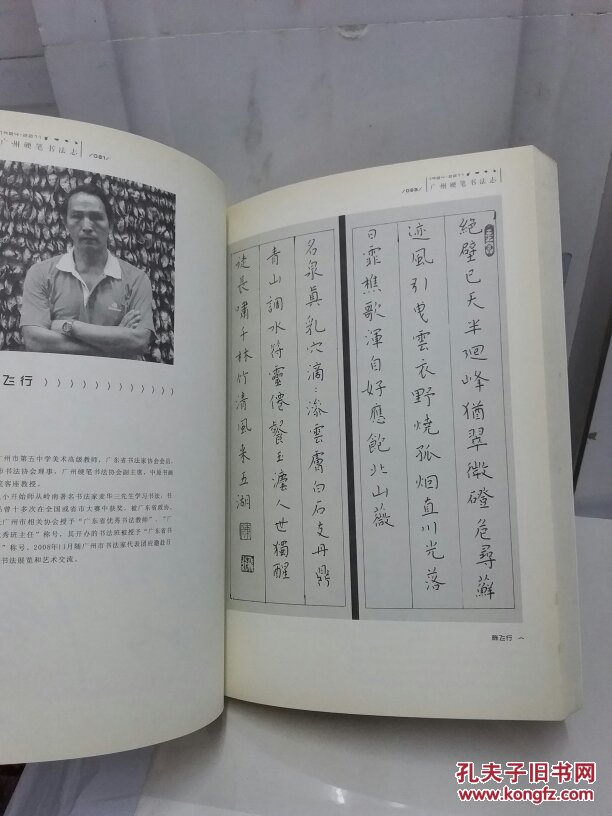 /081/
广州硬笔书法志
飞行
广州市第五中学美术高级教师，广东省书法家协会会员，
市书法协会理事，广州硬笔书法协会副主席，中原书画
院客座教授。
小开始师从岭南著名书法家麦华三先生学习书法，书
曾十多次在全国或省市大赛中获奖，被广东省政协、
广州市相关协会授予“广东省优秀书法教师”、“
优秀班主任”称号，其开办的书法班被授予“广东省书
”称号。2008年11月随广州市书法家代表团应邀赴日
书法展览和艺术交流。
/083/
广州硬笔书法志
絕壁已天半迴峰猶翠微磴危尋蘚
迹風引曳雲衣野燒孤烟直川光落
日霏樵歌渾自好應飽北山薇
名泉真乳穴滴滴滲雲膚白石支丹鼎
青山調水符靈僊餐玉瀣人世獨醒
徒長嘯千林竹清風来五湖
陈飞行
孔夫子旧书网
www.kongfz.com